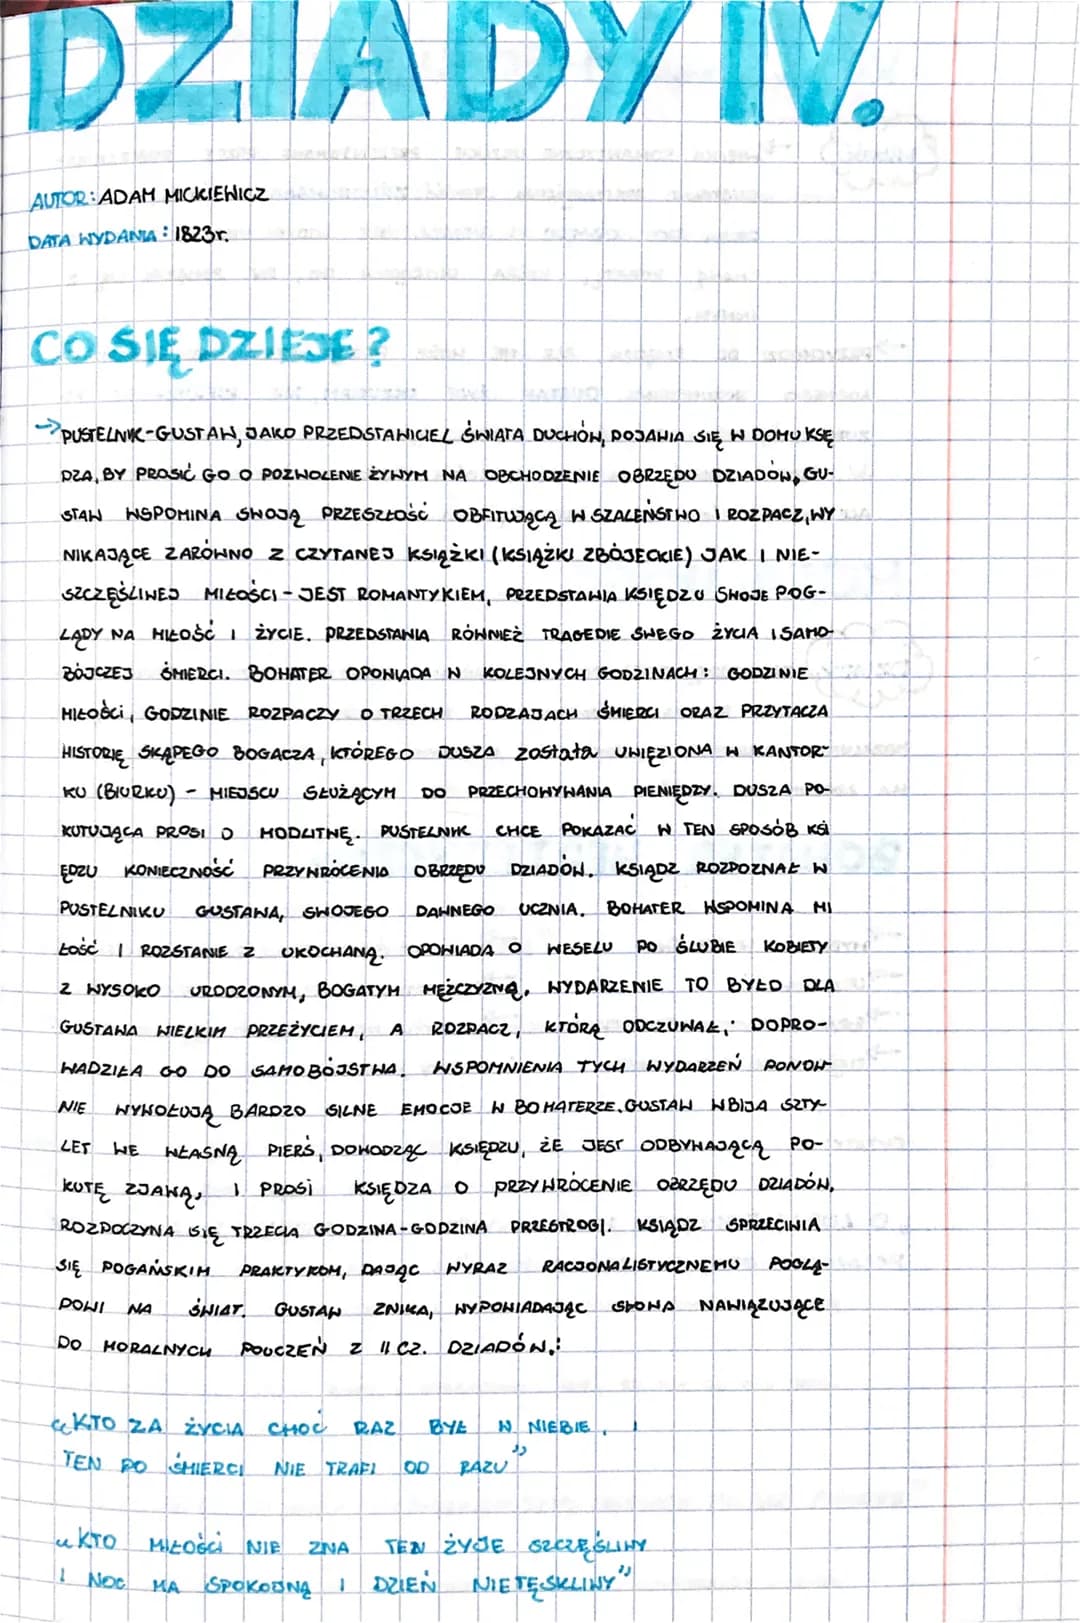 DZIADY IV.
AUTOR: ADAM MICKIEWICZ
DATA WYDANIA: 1823r.
CO SIĘ DZIEJE?
→PUSTELNIK-GUSTAW, JAKO PRZEDSTAWICIEL ŚWIATA DUCHÓW, POJAWIA SIĘ W DOMU KSĘ
DZA, BY PROSIĆ GO O POZWOLENIE ŻYWYM NA OBCHODZENIE OBRZĘDU DZIADÓW, GU-
STAW WSPOMINA SWOJĄ PRZESZŁOŚĆ OBFITUJĄCĄ W SZALEŃSTWO I ROZPACZ, WY
NIKAJĄCE ZARÓWNO Z CZYTANEJ KSIĄŻKI (KSIĄŻKI ZBÓJECKIE) JAK I NIE-
SZCZĘŚLIWEJ MIŁOŚCI - JEST ROMANTYKIEM, PRZEDSTAWIA KSIĘDZU SWOJE POG-
LĄDY NA MIŁOŚĆ I ŻYCIE. PRZEDSTAWIA RÓWNIEŻ TRAGEDIE SWEGO ŻYCIA I SAMO-
BÓJCZEJ ŚMIERCI. BOHATER OPOWIADA W KOLEJNYCH GODZINACH: GODZINIE
MIŁOŚCI, GODZINIE ROZPACZY O TRZECH RODZAJACH ŚMIERCI ORAZ PRZYTACZA
HISTORIĘ SKĄPEGO BOGACZA, KTÓREGO DUSZA została UWIĘZIONA W KANTOR-
KU (BIURKU) - MIEJSCU SŁUŻĄCYM DO PRZECHOWYWANIA PIENIĘDZY. DUSZA PO-
KUTUJĄCA PROSI O MODLITWĘ. PUSTELNIK CHCE POKAZAĆ W TEN SPOSÓB KSI
ĘDZU KONIECZNOŚĆ PRZYWRÓCENIA OBRZĘDU DZIADÓW. KSIĄDZ ROZPOZNAŁ W
PUSTELNIKU GUSTAWA, SWOJEGO DAWNEGO UCZNIA. BOHATER WSPOMINA MI
ŁOŚĆ I ROZSTANIE Z UKOCHANĄ. OPOWIADA O WESELU PO ŚLUBIE KOBIETY
Z WYSOKO URODZONYM, BOGATYM MĘŻCZYZNĄ, WYDARZENIE TO BYŁO DLA
GUSTAWA WIELKIM PRZEŻYCIEM, A ROZPACZ, KTÓRĄ ODCZUWAŁ, DOPRO-
WADZIŁA GO DO SAMOBÓJSTWA. WSPOMNIENIA TYCH WYDARZEŃ PONOW
NIE WYWOŁUJĄ BARDZO SILNE EMOCJE W BOHATERZE. GUSTAW WBIJA SZTY-
LET WE WŁASNĄ PIERŚ, DOWODZĄC KSIĘDZU, ŻE JEST ODBYWAJĄCĄ PO-
KUTĘ ZJAWĄ, I PROSI KSIĘDZA O PRZYWRÓCENIE OBRZĘDU DZIADÓW,
ROZPOCZYNA SIĘ TRZECIA GODZINA-GODZINA PRZESTROGI. KSIĄDZ SPRZECIWIA
SIĘ POGAŃSKIM PRAKTYKOM, DAJĄC WYRAZ RACJONALISTYCZNEMU POGLĄ-
DOWI NA ŚWIAT. GUSTAW ZNIKA, WYPOWIADAJĄC SŁOWA NAWIĄZUJĄCE
DO MORALNYCH POUCZEŃ Z II CZ. DZIADÓW.:
"KTO ZA ŻYCIA CHOĆ RAZ BYŁ W NIEBIE, I
TEN PO ŚMIERCI NIE TRAFI OD RAZU"
"KTO MIŁOŚCI NIE ZNA TEN ŻYJE SZCZĘŚLIWY
I NOC MA SPOKOJNĄ I DZIEŃ NIETĘSKLIWY"